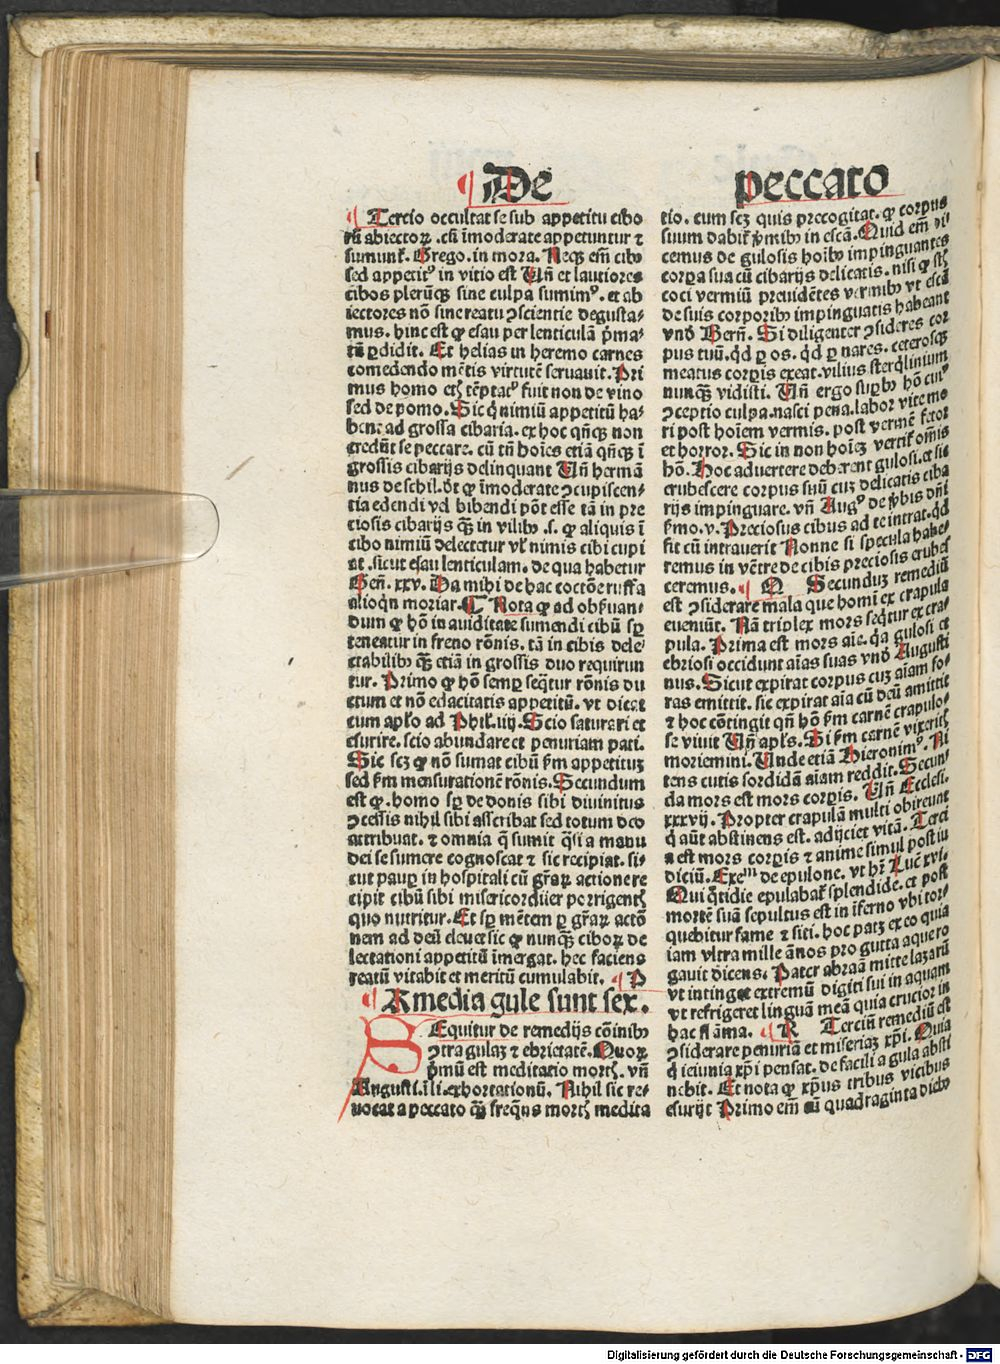 De peccato
Tercio occultat se sub appetitu cibo
rũ abiectoꝝ .cũ ĩmoderate appetuntur ⁊
sumunt᷑. Grego. in mora. Neqꝫ em̃ cibꝰ
sed appetitꝰ in vitio est Un̄ et lautiores
cibos plerũqꝫ sine culpa sumimꝰ. et ab
iectores nõ sine reatu ↄscientie degusta⸗
mus. hinc est ꝙ esau per lenticulã p̃ma⸗
tũ ꝑdidit. Et helias in heremo carnes
comedendo mẽtis virtutẽ seruauit. Pri
mus homo etiã tẽptatꝰ fuit non de vino
sed de pomo. Sic q̃ nimiũ appetitũ ha⸗
bent ad grossa cibaria. ex hoc qñqꝫ non
credũt se peccare. cũ tñ hoĩes etiã qñqꝫ ĩ
grossis cibarijs delinquant Un̄ hermã
nus de schil. dt̃ ꝙ ĩmoderate ↄcupiscen⸗
tia edendi vel bibendi põt esse tã in pre
ciosis cibarijs qꝫ in vilibꝰ .s. ꝙ aliquis ĩ
cibo nimiũ delectetur vl᷑ nimis cibi cupi
at .sicut esau lenticulam. de qua habetur
Geñ. xxv. Da mihi de hac coctõe ruffa
alioqñ moriar. ¶ Nota ꝙ ad obseruan⸗
dum ꝙ hõ in auiditate sumendi cibũ sꝑ
teneatur in freno rõnis. tã in cibis dele⸗
ctabilibꝰ qꝫ etiã in grossis duo requirun
tur. Primo ꝙ hõ semꝑ seq̃tur rõnis du
ctum et nõ edacitatis appetitũ. vt dicat
cum apl̃o ad Phil. iiij. Scio saturari et
esurire. scio abundare et penuriam pati.
Sic scꝫ ꝙ nõ sumat cibũ ẜm appetituꝫ
sed ẜm mensurationẽ rõnis. Secundum
est ꝙ. homo sꝑ de donis sibi diuinitus
ↄcessis nihil sibi asscribat sed totum deo
attribuat. ⁊ omnia q̃ sumit q̃si a manu
dei se sumere cognoscat ⁊ sic recipiat. si⸗
cut pauꝑ in hospitali cũ gr̃aꝝ actione re
cipit cibũ sibi misericorditer porrigentꝭ
quo nutritur. Et sꝑ mẽtem ꝑ gr̃aꝝ actõ
nem ad deũ eleuet sic ꝙ nunqꝫ ciboꝝ de
lectationi appetitũ ĩmergat. hec faciens
reatũ vitabit et meritũ cumulabit. ¶ P
¶ Remedia gule sunt sex.
SEquitur de remedijs cõinibꝰ
ↄtra gulaꝫ ⁊ ebrietatẽ. Quoꝝ
p̃mũ est meditatio mortꝭ. vñ
Augusti. ĩ li. exhortationũ. Nihil sic re⸗
uocat a peccato q̃ꝫ freq̃ns mortꝭ medita
tio. cum scꝫ quis precogitat. ꝙ corpus
suum dabit᷑ v̓mibꝰ in escã. Quid em̃ di⸗
cemus de gulosis hoĩbꝰ impinguantes
corꝑa sua cũ cibarijs delicatis. nisi ꝙ st̃
coci vermiũ prouidẽtes vermibꝰ vt escã
de suis corporibꝰ impinguatis habeant
vnd̓ Berñ. Si diligenter ↄsideres cor
pus tuũ. q̃d ꝑ os. q̃d ꝑ nares. ceterosqꝫ
meatus corꝑis exeat. vilius sterq̃linium
nunqꝫ vidisti. Un̄ ergo suꝑbꝰ hõ cuiꝰ
ↄceptio culpa. nasci pena. labor vite mo
ri post hoĩem vermis. post vermẽ fetor
et horror. Sic in non hoĩeꝫ vertit᷑ om̃is
hõ. Hoc aduertere deberent gulosi. et sic
erubescere corpus suũ cuꝫ delicatis ciba
rijs impinguare. vñ Augꝰ de v̓bis dñi
ẜmo. v. Preciosus cibus ad te intrat. q̃d
fit cũ intrauerit Nonne si specula habe⸗
remus in vẽtre de cibis preciosis erubes
ceremus. ¶ Q Secunduꝫ remediũ
est ↄsiderare mala que homĩ ex crapula
eueniũt. Nã triplex mors seq̃tur ex cra⸗
pula. Prima est mors aĩe. q̃a gulosi et
ebriosi occidunt aĩas suas vnd̓ Augusti
nus. Sicut expirat corpus cuꝫ aĩam fo⸗
ras emittit. sic expirat aĩa cũ deũ amittit
⁊ hoc cõtingit qñ hõ ẜm carnẽ crapulo⸗
se viuit Un̄ apl̃s. Si ẜm carnẽ vixeritꝭ
moriemini. Unde etiã Hieronimꝰ. Ni
tens cutis sordidã aĩam reddit. Secun⸗
da mors est mors corꝑis. Un̄ Ecclesi.
xxxvij. Propter crapulã multi obierunt
q̃ aũt abstinens est. adijciet vitã. Terci
a est mors corꝑis ⁊ anime simul post iu
diciũ. Exeᵐ de epulone. vt hr̃ Luc̃ xvi.
Qui q̃tidie epulabat᷑ splendide. et post
mortẽ suã sepultus est in ĩferno vbi tor⸗
quebitur fame ⁊ siti. hoc patꝫ ex eo quia
iam vltra mille ãnos pro gutta aque ro
gauit dicens. Pater abraã mitte lazarũ
vt intingat extremũ digiti sui in aquam
vt refrigeret linguã meã quia crucior in
hac flãma. ¶ R Terciũ remediũ est
ↄsiderare penuriã et miseriaꝫ xp̃i. Quia
q̃ ieiunia xp̃i pensat. de facili a gula absti
nebit. Et nota ꝙ xp̃us tribus vicibus
esurijt Primo em̃ cũ quadraginta diebꝰ
Digitalisierung gefördert durch die Deutsche Forschungsgemeinschaft - DFG